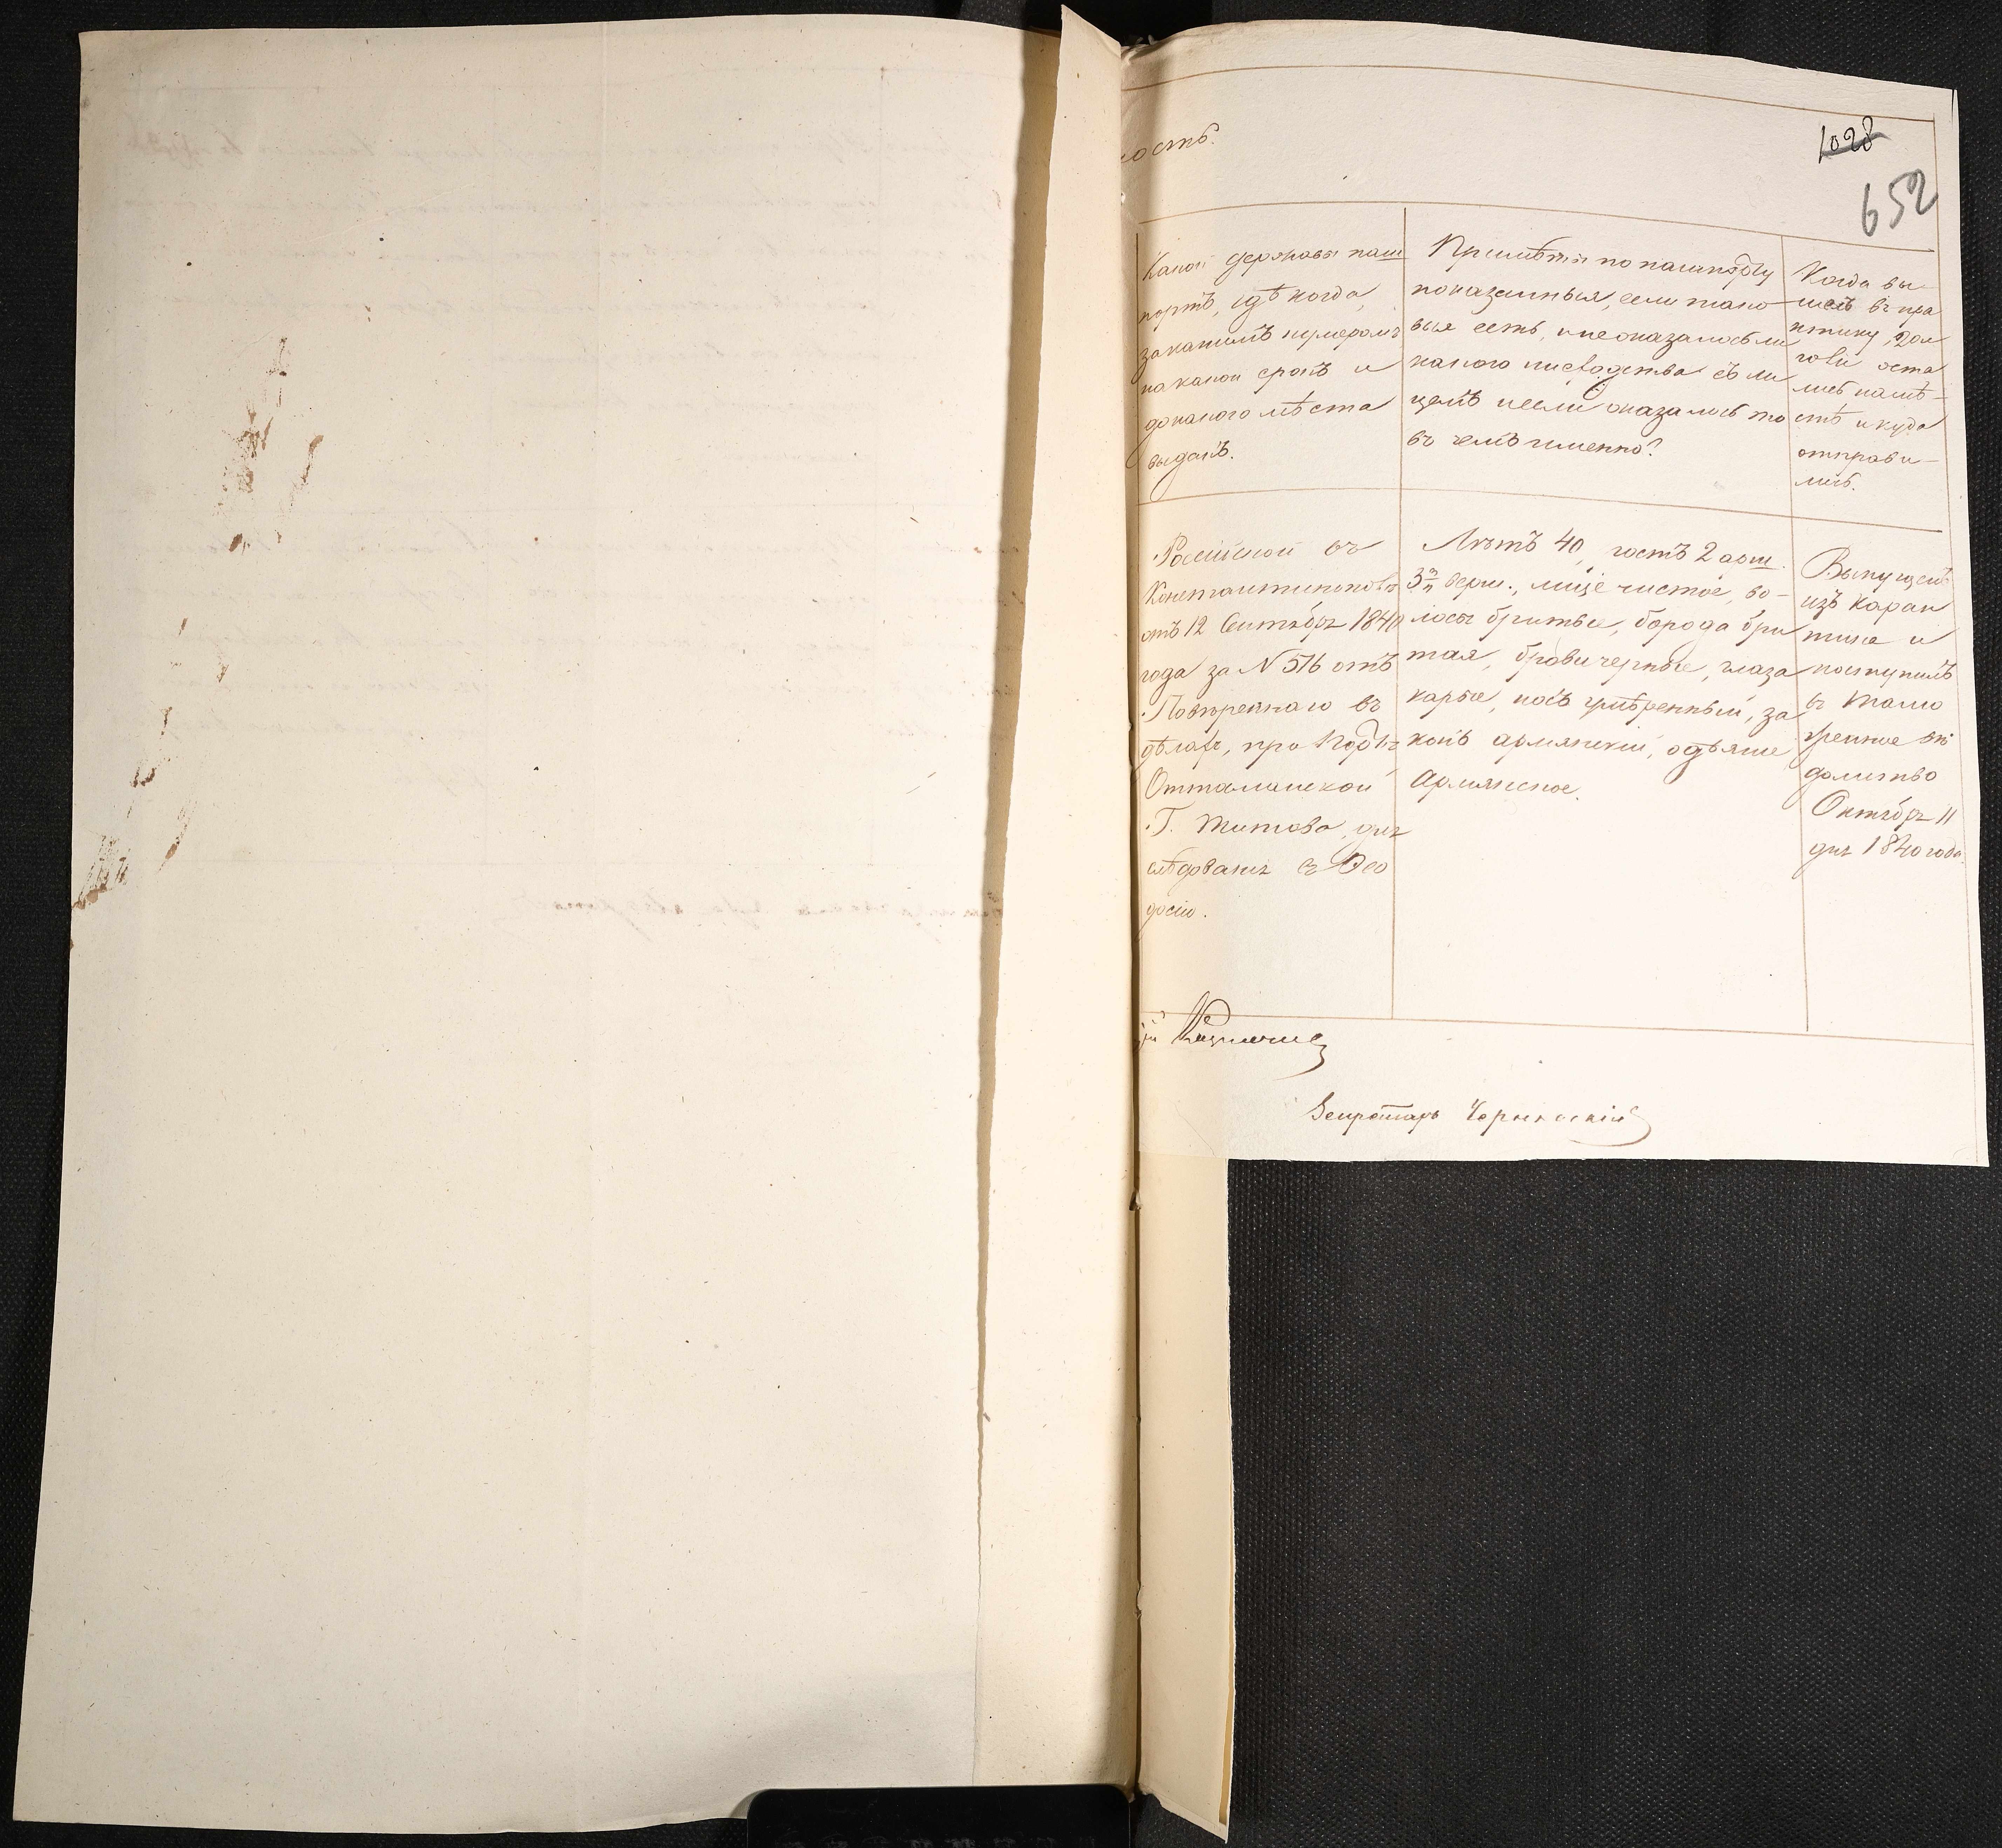 ость.
1028
652
Какой державы паш
портъ, гдѣ когда,
за какимъ нумеромъ
на какой срокъ и
до какого мѣста
выданъ.
Примѣты по пашпорту
показанныя, если тако
выя есть, и не оказалось ли
какого несходства съ ли
цемъ и если оказалось то
въ чемъ именно?
Когда вы
шелъ въ пра
ктику, дол
го ли оста
лись на мѣ-
стѣ и куда
отправи-
лись.
Россійской въ
Константинополѣ
отъ 12 Сентября 1840
года за N 516 отъ
Повѣреннаго въ
дѣлахъ, при Портѣ
Оттоманской
Г. Титова, для
слѣдованія въ Ѳео
досію.
Лѣтъ 40, ростъ 2 арш.
3 верш., лице чистое, во-
лосы бритые, борода бри
тая, брови черные, глаза
карые, носъ умѣренный, за
конъ армянскій, одѣяніе
Армянское.
Выпущенъ
изъ Каран
тина и
поступилъ
въ Тамо
женное вѣ
домство
Октября 11
дня 1840 года.
Казначеев
Секретарь